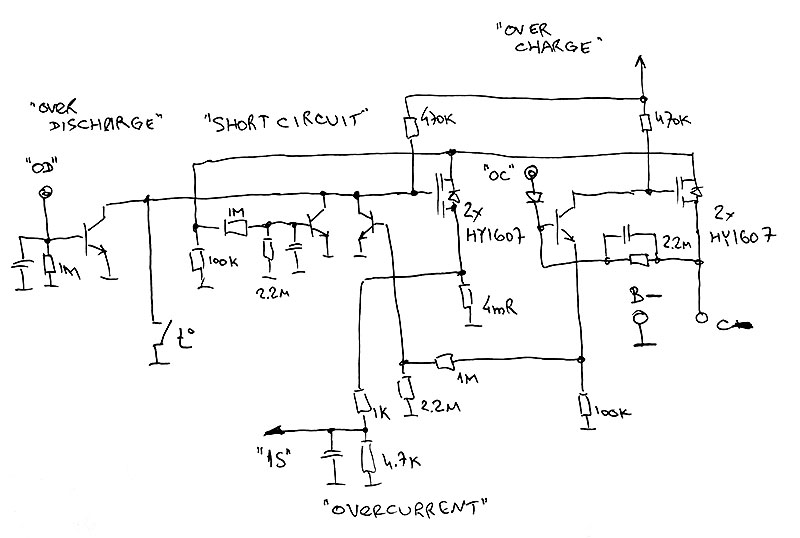 "OVER
CHARGE"
"OVER
DISCHARGE"
"SHORT CIRCUIT"
470K
470K
"OD"
"OC"
1M
2x
HY1607
2x
HY1607
1M
100K
2.2M
2.2M
4mR
B-
C-
t°
1M
1K
2.2M
100K
"1S"
4.7K
"OVERCURRENT"